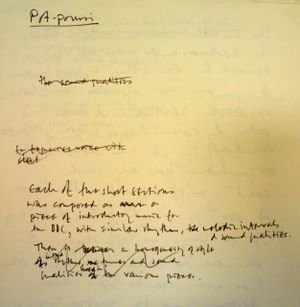 PA-pourri
the sound qualities
Each of the short sections
was composed as a
piece of introductory music for
the ODC, with similar rhythms, the melodic intervals
& sound qualities.
There is a homogeneity of style
of rhythms, and sound
qualities the various pieces.